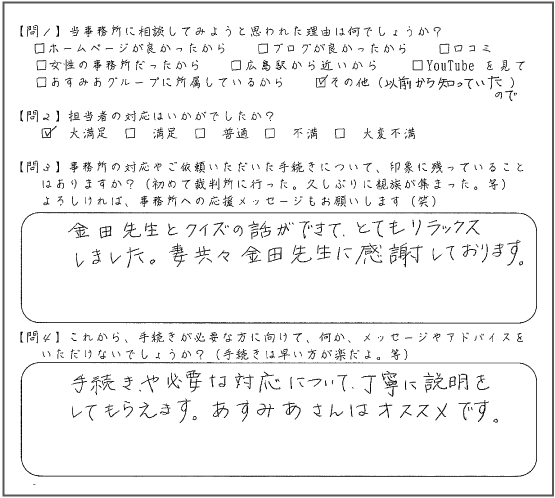 【問1】当事務所に相談してみようと思われた理由は何でしょうか?
□ホームページが良かったから □ブログが良かったから □口コミ
□女性の事務所だったから □広島駅から近いから □YouTubeを見て
□あすみあグループに所属しているから ☑その他(以前から知っていた)
ので
【問2】担当者の対応はいかがでしたか?
☑ 大満足 □ 満足 □ 普通 □ 不満 □ 大変不満
【問3】事務所の対応やご依頼いただいた手続きについて、印象に残っていること
はありますか?(初めて裁判所に行った。久しぶりに親族が集まった。等)
よろしければ、事務所への応援メッセージもお願いします(笑)
金田先生とクイズの話ができて、とてもリラックス
しました。妻共々金田先生に感謝しております。
【問4】これから、手続きが必要な方に向けて、何か、メッセージやアドバイスを
いただけないでしょうか?(手続きは早い方が楽だよ。等)
手続きや必要な対応について、丁寧に説明を
してもらえます。あすみあさんはオススメです。